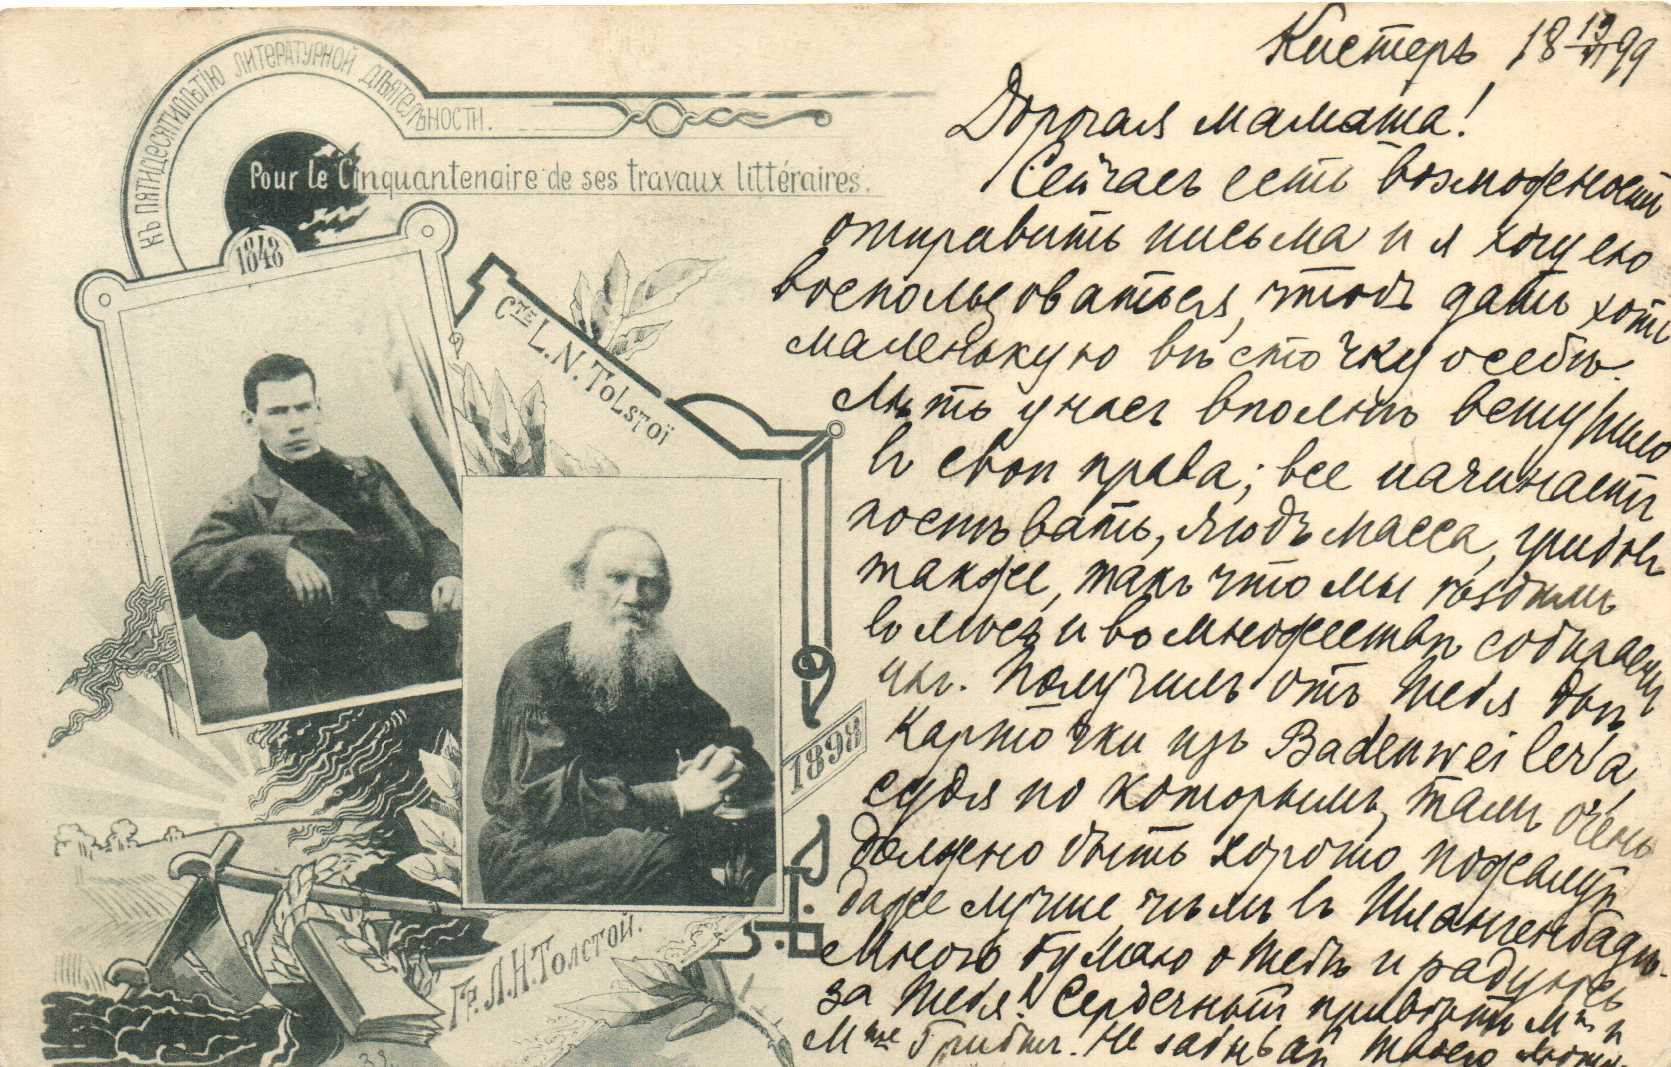 Къ пятидесятилѣтію литературной дѣятельности.
Pour le Cinquantenaire de ses travaux littéraires.
1848
Cᵀᴱ L. N. Tolstoï
1898
Гр. Л. Н. Толстой.
Кистеръ 18 19/VI 99
Дорогая мамаша!
Сейчасъ есть возможность
отправить письма и я хочу ею
воспользоваться, чтобъ дать хоть
маленькую вѣсточку о себѣ.
Лѣто у насъ вполнѣ вступило
въ свои права; все начинаетъ
поспѣвать, ягодъ масса, грибовъ
также, такъ что мы ѣздимъ
въ лѣсъ и во множествѣ собираемъ
ихъ. Получилъ отъ Тебя двѣ
карточки изъ Badenweiler'а,
судя по которымъ, тамъ очень
должно быть хорошо пожалуй
даже лучше чѣмъ въ Шлангенбадѣ.
Много думаю о Тебѣ и радуюсь
за Тебя! Сердечный привѣтъ Mʳ и
Mᵐᵉ Не забывай Твоего